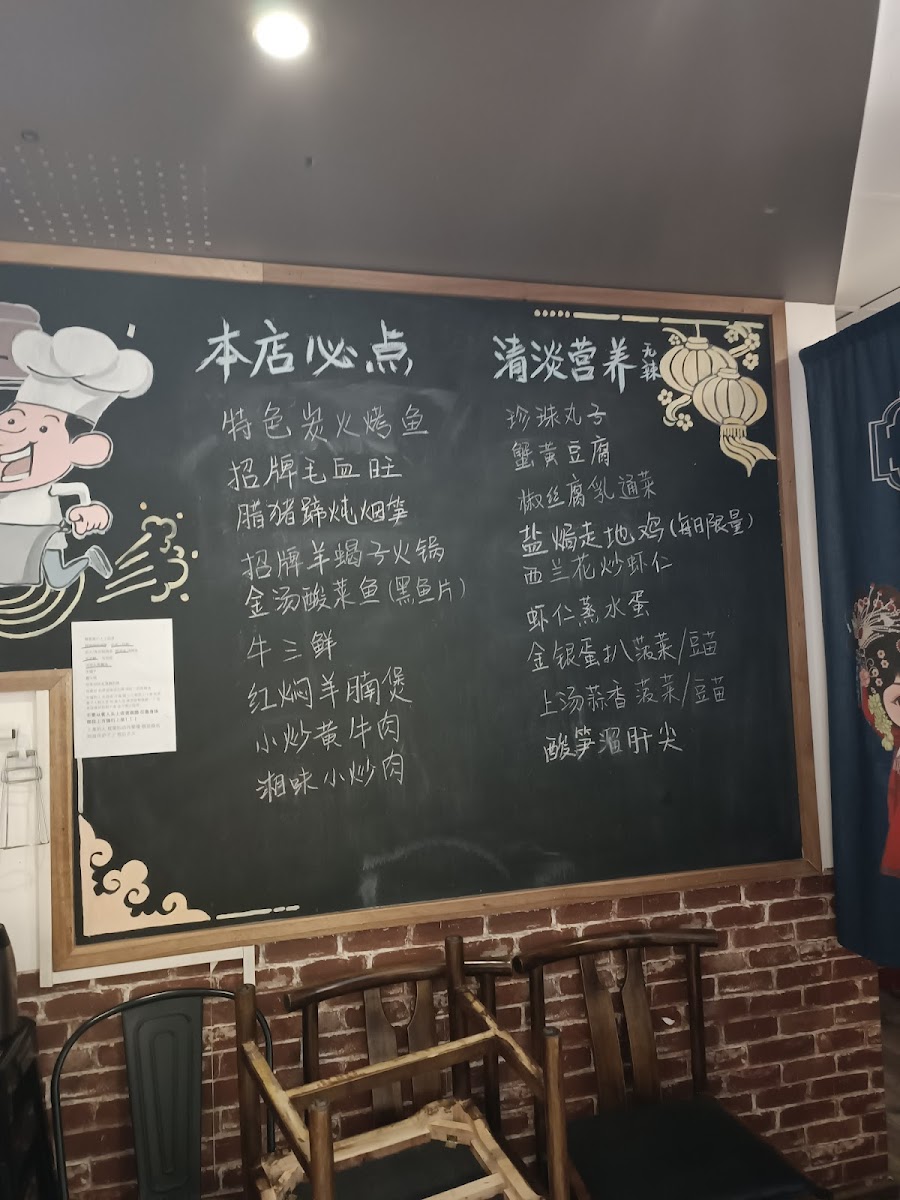 本店必点
特色炭火烤鱼
招牌毛血旺
腊猪蹄炖烟笋
招牌羊蝎子火锅
金汤酸菜鱼(黑鱼片)
牛三鲜
红焖羊腩煲
小炒黄牛肉
湘味小炒肉
清淡营养 无辣
珍珠丸子
蟹黄豆腐
椒丝腐乳通菜
盐焗走地鸡(每日限量)
西兰花炒虾仁
虾仁蒸水蛋
金银蛋扒菠菜/豆苗
上汤蒜香菠菜/豆苗
酸笋溜肝尖